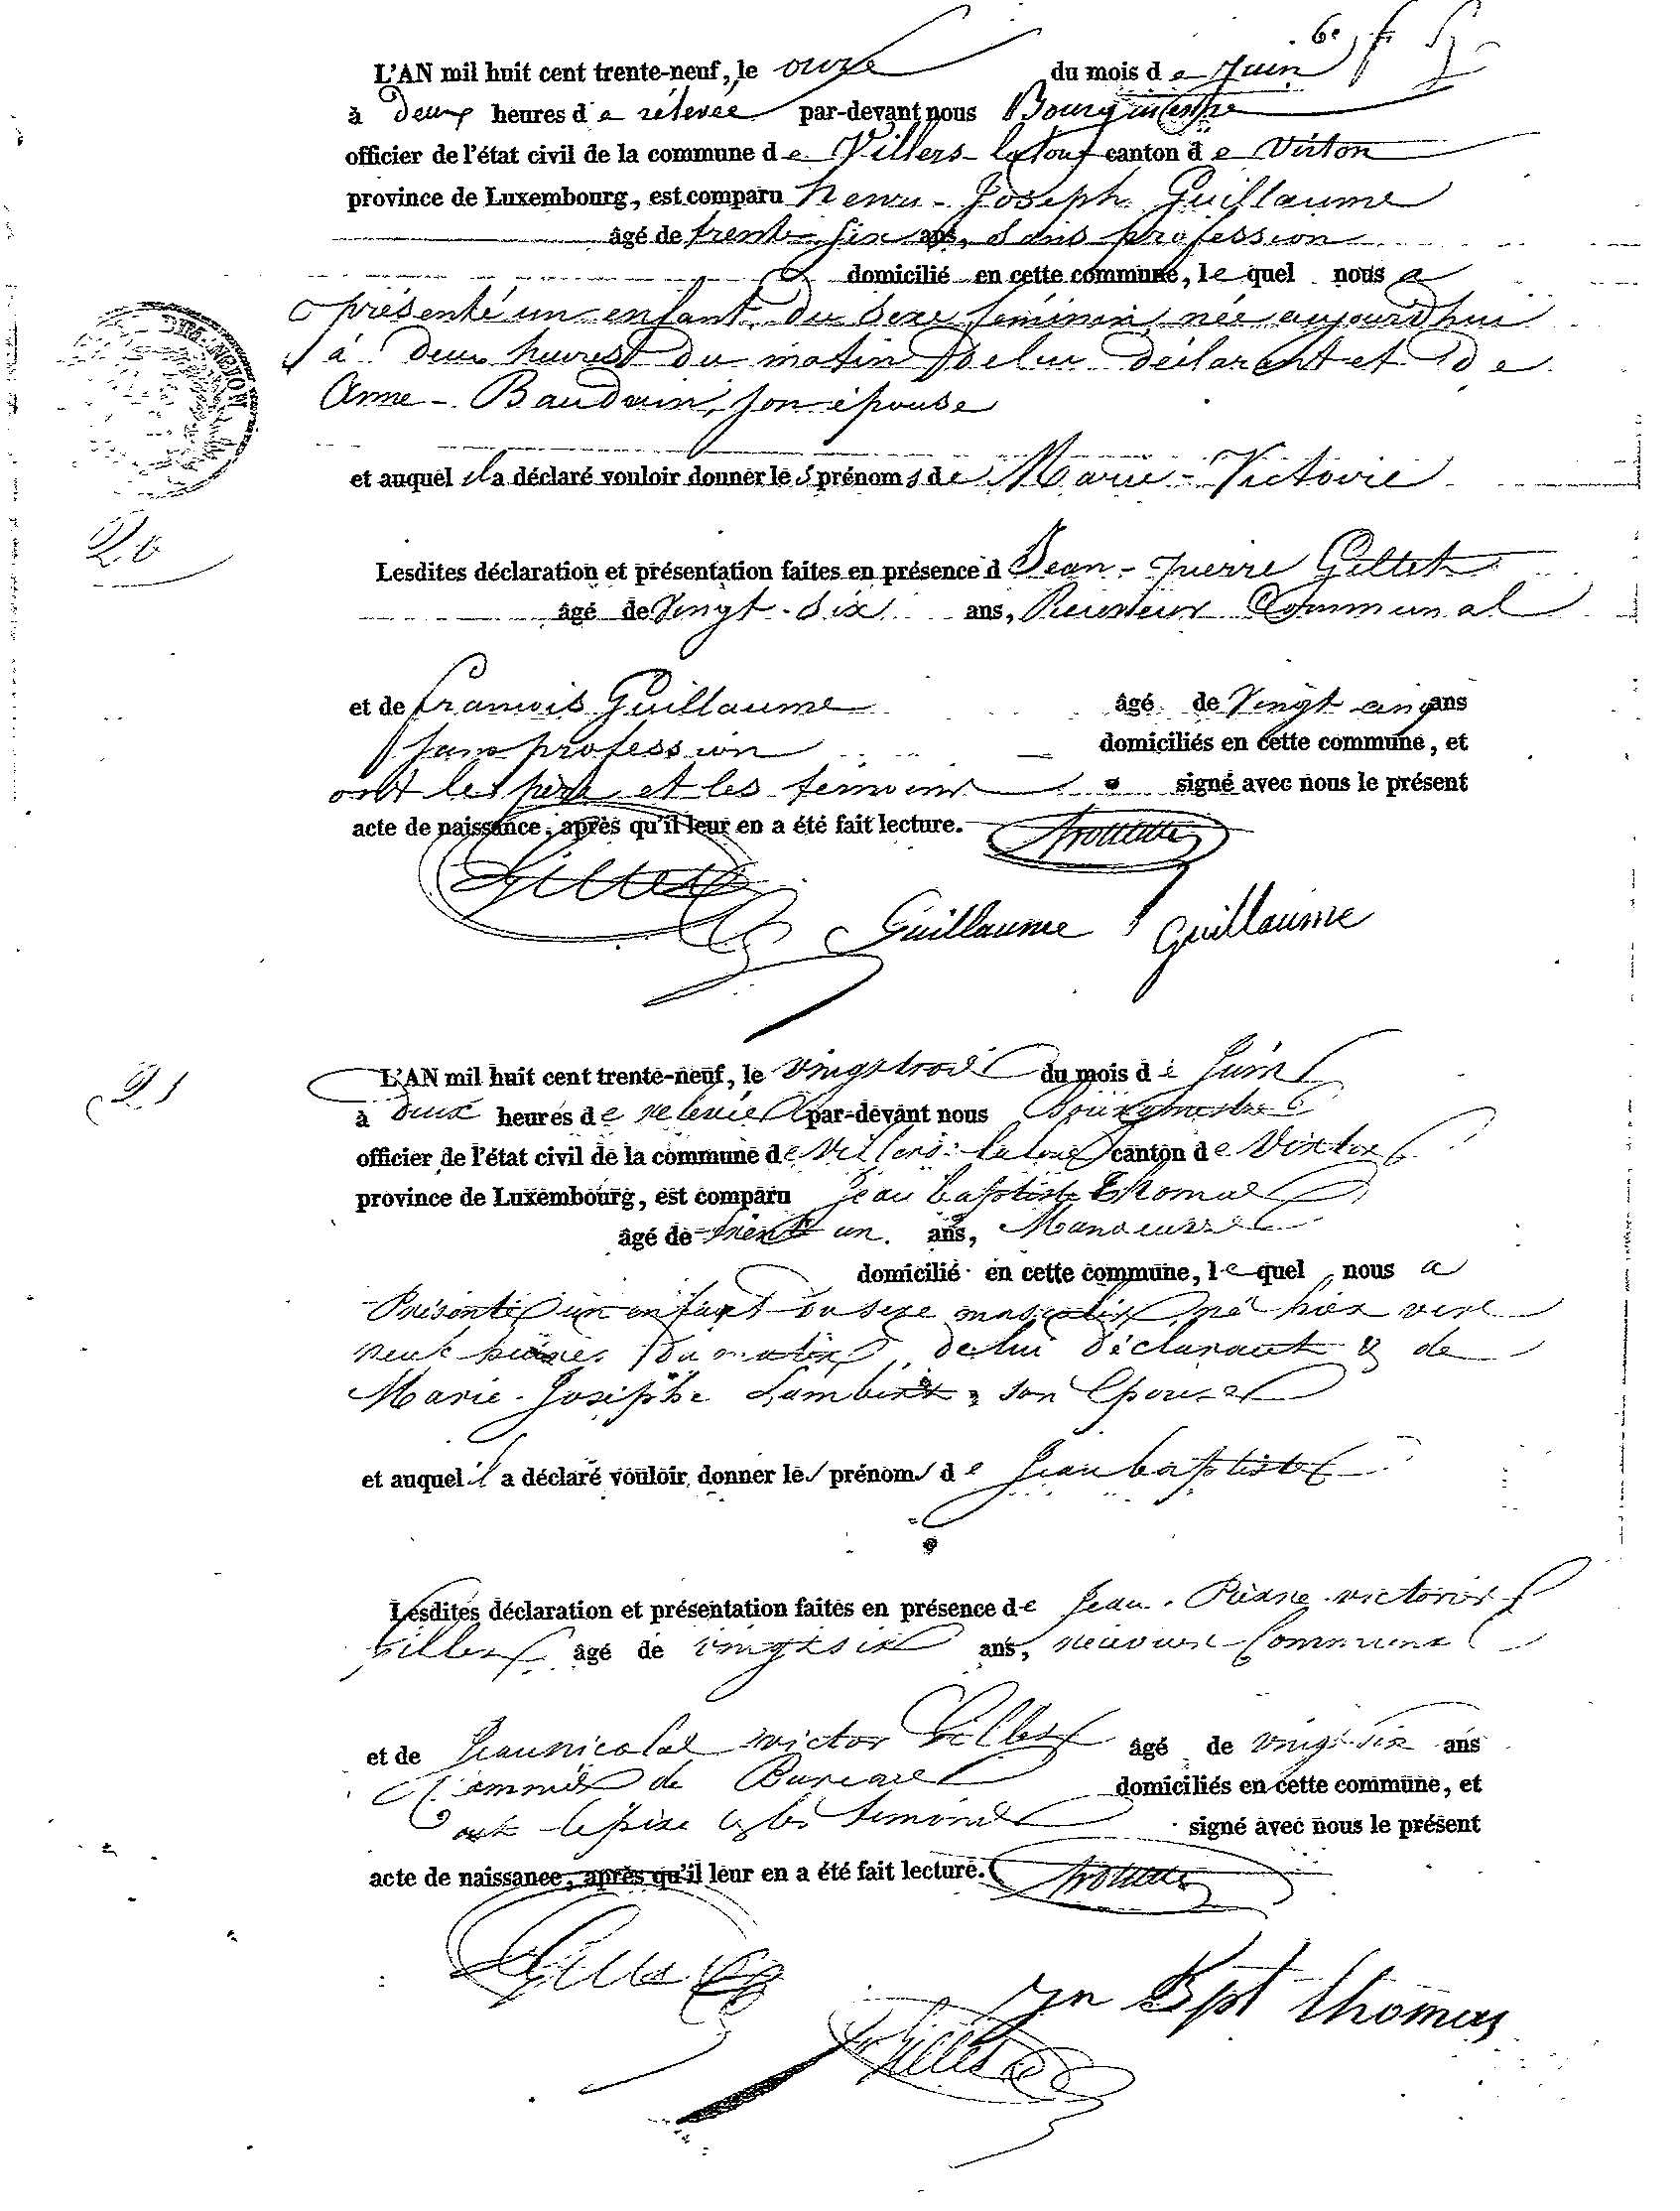 6e f
L'AN mil huit cent trente-neuf, le onze du mois de Juin
à deux heures de rélevée par-devant nous Bourgmestre
officier de l'état civil de la commune de Villers-la-touf canton de Virton
province de Luxembourg, est comparu henri-Joseph Guillaume
âgé de trente six ans, sans profession
domicilié en cette commune, lequel nous a
présenté un enfant du sexe féminin née aujourdhui
à deux heures du matin de lui déclarant et de
Anne-Baudouin, son épouse
et auquel il a déclaré vouloir donner les prénoms de Marie-Victoire
20
Lesdites déclaration et présentation faites en présence d Jean-pierre Gillet
âgé de Vingt-six ans, Receveur Communal
et de francois Guillaume âgé de Vingt cinq ans
sans profession domiciliés en cette commune, et
ont le père et les témoins signé avec nous le présent
acte de naissance, après qu'il leur en a été fait lecture.
Guillaume Guillaume
21
L'AN mil huit cent trente-neuf, le vingt trois du mois de Juin
à deux heures de relevée par-devant nous Bourgmestre
officier de l'état civil de la commune de villers-latouf canton de Virton
province de Luxembourg, est comparu jean baptiste thomas
âgé de trente un ans, Manoeuvre
domicilié en cette commune, lequel nous a
Présenté un enfant du sexe masculin né hier vers
neuf heures du matin de lui déclarant & de
Marie-Josephe Lambert, son Epouse
et auquel il a déclaré vouloir donner les prénoms de jean baptiste
Lesdites déclaration et présentation faites en présence de jean-Pierre victorin
Gilles âgé de vingt six ans, receveur Communal
et de jean nicolas victor Gilles âgé de vingt-six ans
Commis de Bureau domiciliés en cette commune, et
ont le père & les témoins signé avec nous le présent
acte de naissance, après qu'il leur en a été fait lecture.
Gilles
jn Bpt thomas
Gilles